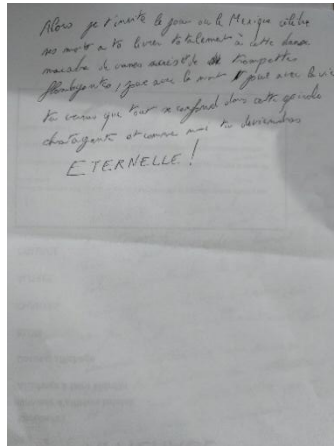 Alors je t'invite le jour où le Mexique célèbre
ses morts à te livrer totalement à cette danse
macabre de trompettes
flamboyantes, joue avec la mort, joue avec la vie
tu verras que tout se confond dans cette
et comme moi tu deviendras
ETERNELLE !